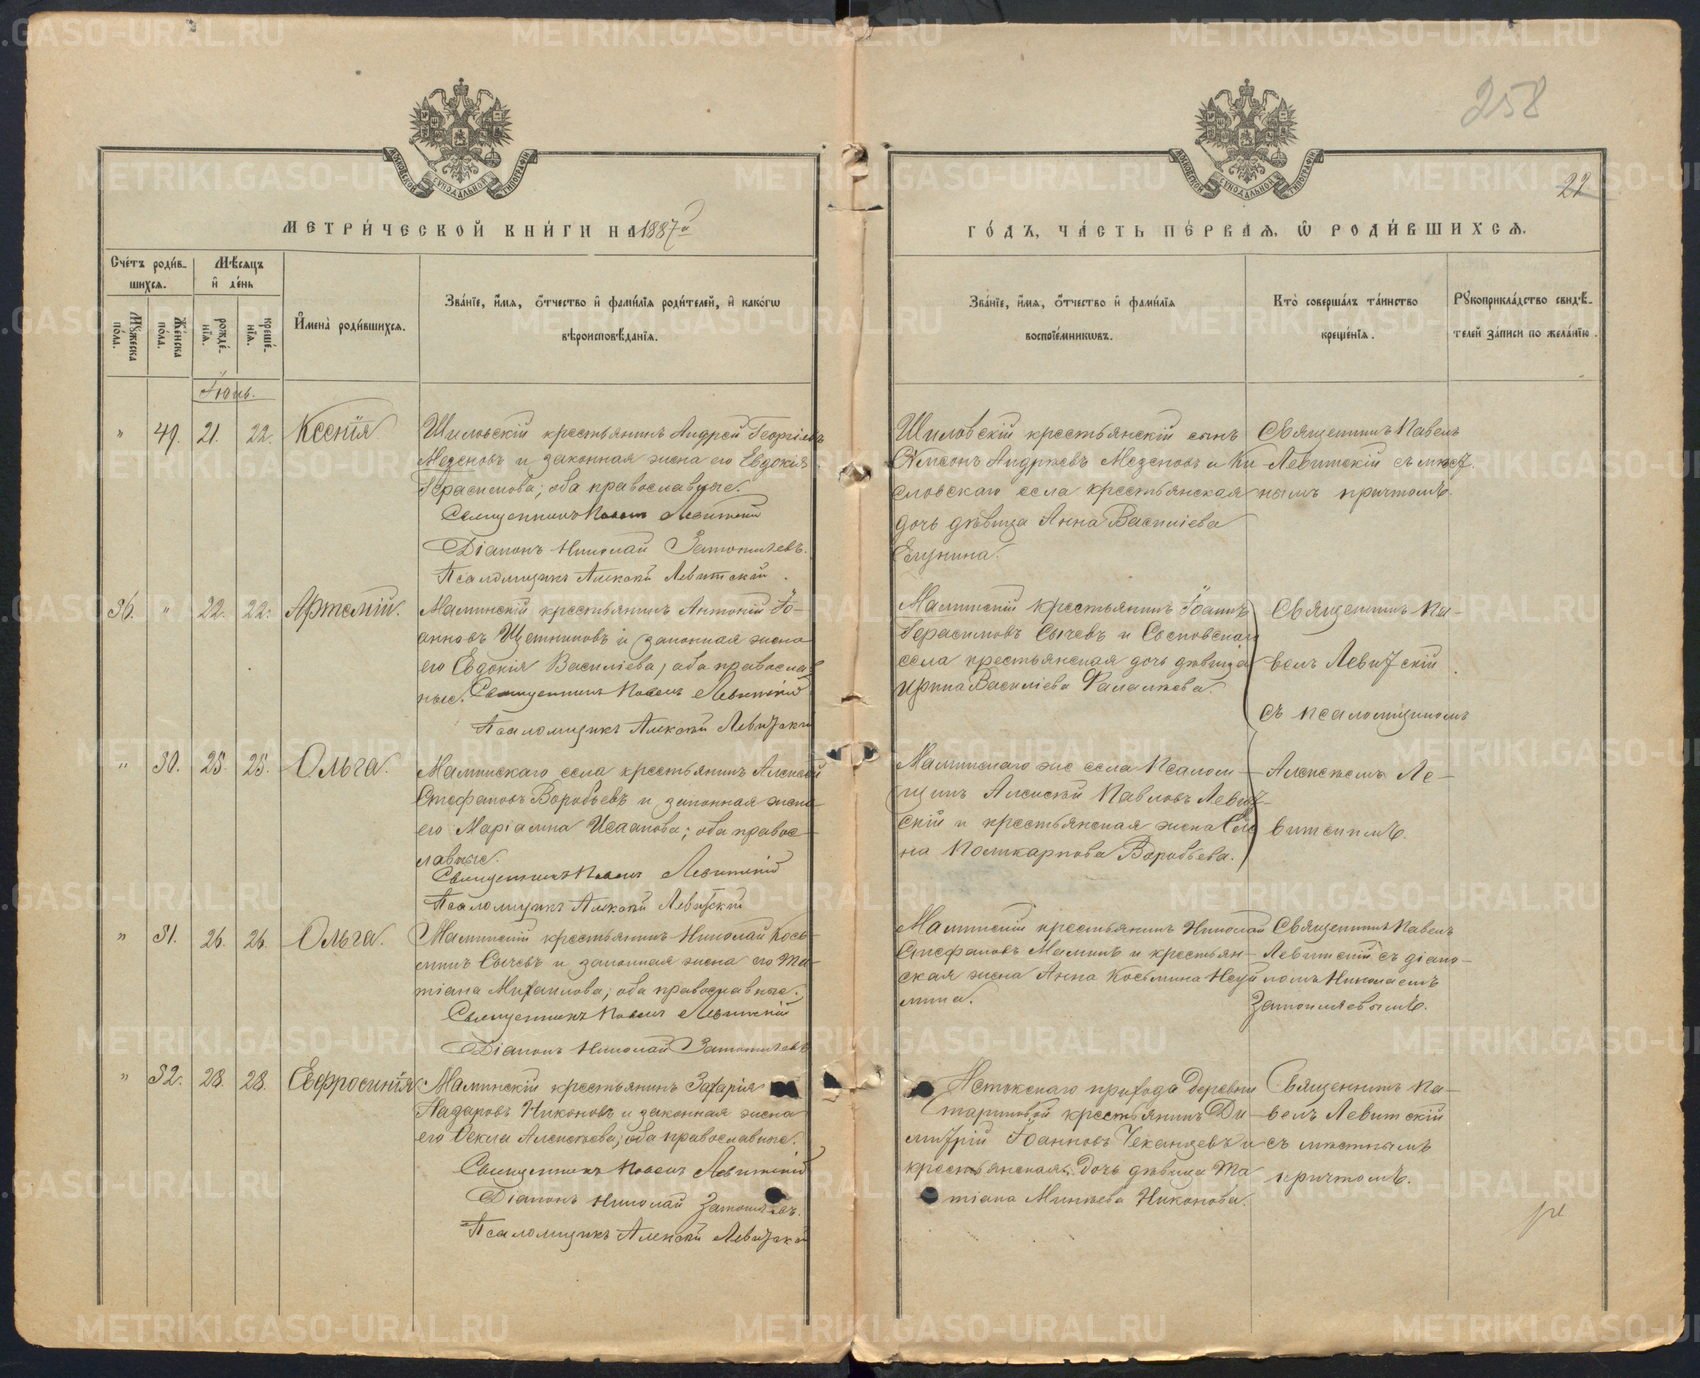 METRIKI.GASO-URAL.RU
258
22
МЕТРИ́ЧЕСКОЙ КНИ́ГИ НА 1887й
ГО́ДЪ, ЧА́СТЬ ПЕ́РВАѦ, Ѿ РОДИ́ВШИХСѦ.
Сче́тъ роди́в-
шихсѧ.
Мѣ́сѧцъ
и҆ де́нь
Мꙋ́жеска по́ла.
Же́нска по́ла.
рожде́нїѧ.
креще́нїѧ.
И҆мена̀ роди́вшихсѧ.
Зва́нїе, и҆́мѧ, ѻ҆́тчество и҆ фами́лїѧ роди́телей, и҆ како́гѡ
вѣроисповѣ́данїѧ.
Зва́нїе, и҆́мѧ, ѻ҆́тчество и҆ фами́лїѧ
воспрїе́мникѡвъ.
Кто̀ соверша́лъ та́инство
креще́нїѧ.
Рꙋкоприкла́дство свидѣ́-
телей за́писи по жела́нїю.
Іюнь.
" 49. 21. 22. Ксенія
Шиловскій крестьянинъ Андрей Георгіевъ
Мезеновъ и законная жена его Евдокія
Герасимова; оба православные.
Священникъ Павелъ Левитскій
Діаконъ Николай
Псаломщикъ Алексѣй Левитскій.
Шиловскій крестьянскій сынъ
Сѵмеонъ Андреевъ Мезеновъ и Ки-
словскаго села крестьянская
дочь дѣвица Анна Василіева
Священникъ Павелъ
Левитскій съ мѣст-
нымъ причтомъ.
36. " 22. 22. Артемій.
Маминскій крестьянинъ Антоній Іо-
анновъ Щетниковъ и законная жена
его Евдокія Василіева; оба православ-
ные. Священникъ Павелъ Левитскій
Псаломщикъ Алексѣй Левитскій
Маминскій крестьянинъ Іоаннъ
Герасимовъ Сычевъ и Сосновскаго
села крестьянская дочь дѣвица
Ирина Василіева
Священникъ Па-
велъ Левитскій
съ псаломщикомъ
" 30. 25. 25. Ольга.
Маминскаго села крестьянинъ Алексѣй
Стефановъ Воробьевъ и законная жена
его Маріамна Исаакова; оба правос-
лавные.
Священникъ Павелъ Левитскій
Псаломщикъ Алексѣй Левитскій
Маминскаго же села Псалом-
щикъ Алексѣй Павловъ Левит-
скій и крестьянская жена Еле-
на Поликарпова Воробьева.
Алексѣемъ Ле-
витскимъ.
" 31. 26. 26. Ольга.
Маминскій крестьянинъ Николай Кось-
минъ Сычевъ и законная жена его Та-
тіана Михаилова; оба православные.
Священникъ Павелъ Левитскій
Діаконъ Николай
Маминскій крестьянинъ Николай
Стефановъ Маминъ и крестьян-
ская жена Анна Косьмина
Священникъ Павелъ
Левитскій съ діако-
номъ Николаемъ
" 32. 28. 28. Евфросинія
Маминскій крестьянинъ Захарія
Назаровъ Никоновъ и законная жена
его Ѳекла Алексѣева; оба православные.
Священникъ Павелъ Левитскій
Діаконъ Николай
Псаломщикъ Алексѣй Левитскій
прихода деревни
крестьянинъ Ди-
митрій Іоанновъ Чеканцевъ и
крестьянская дочь дѣвица Та-
тіана Никонова.
Священникъ Па-
велъ Левитскій
съ мѣстнымъ
причтомъ.